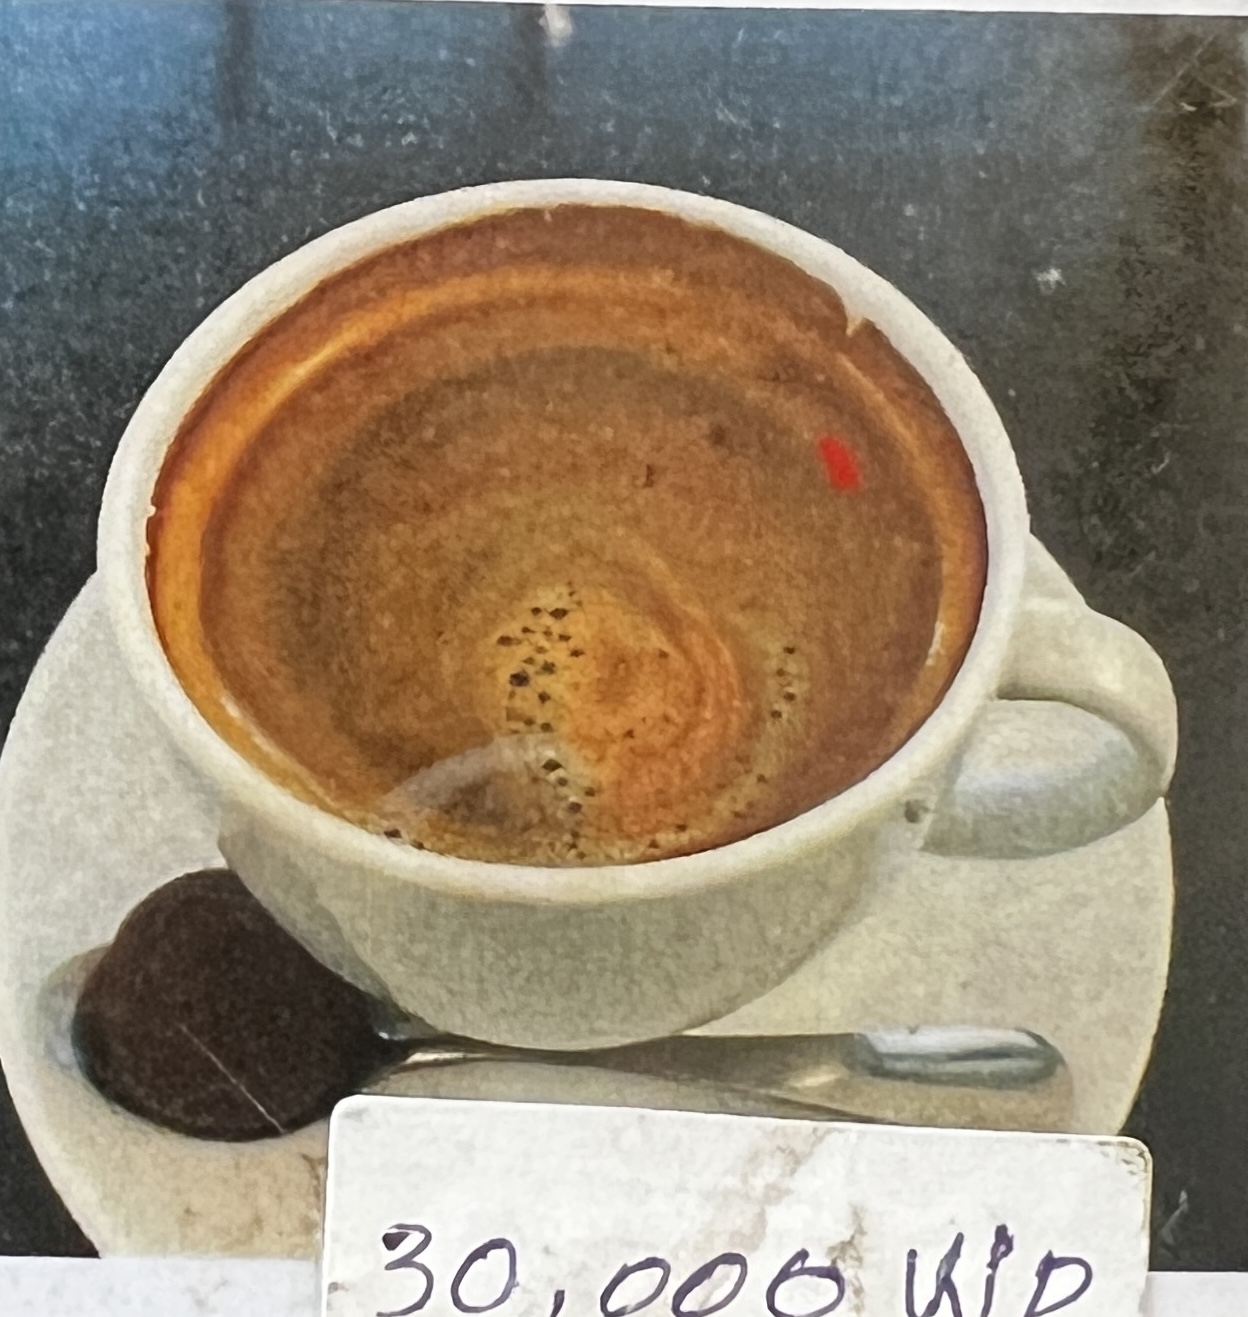 30,000 KIP